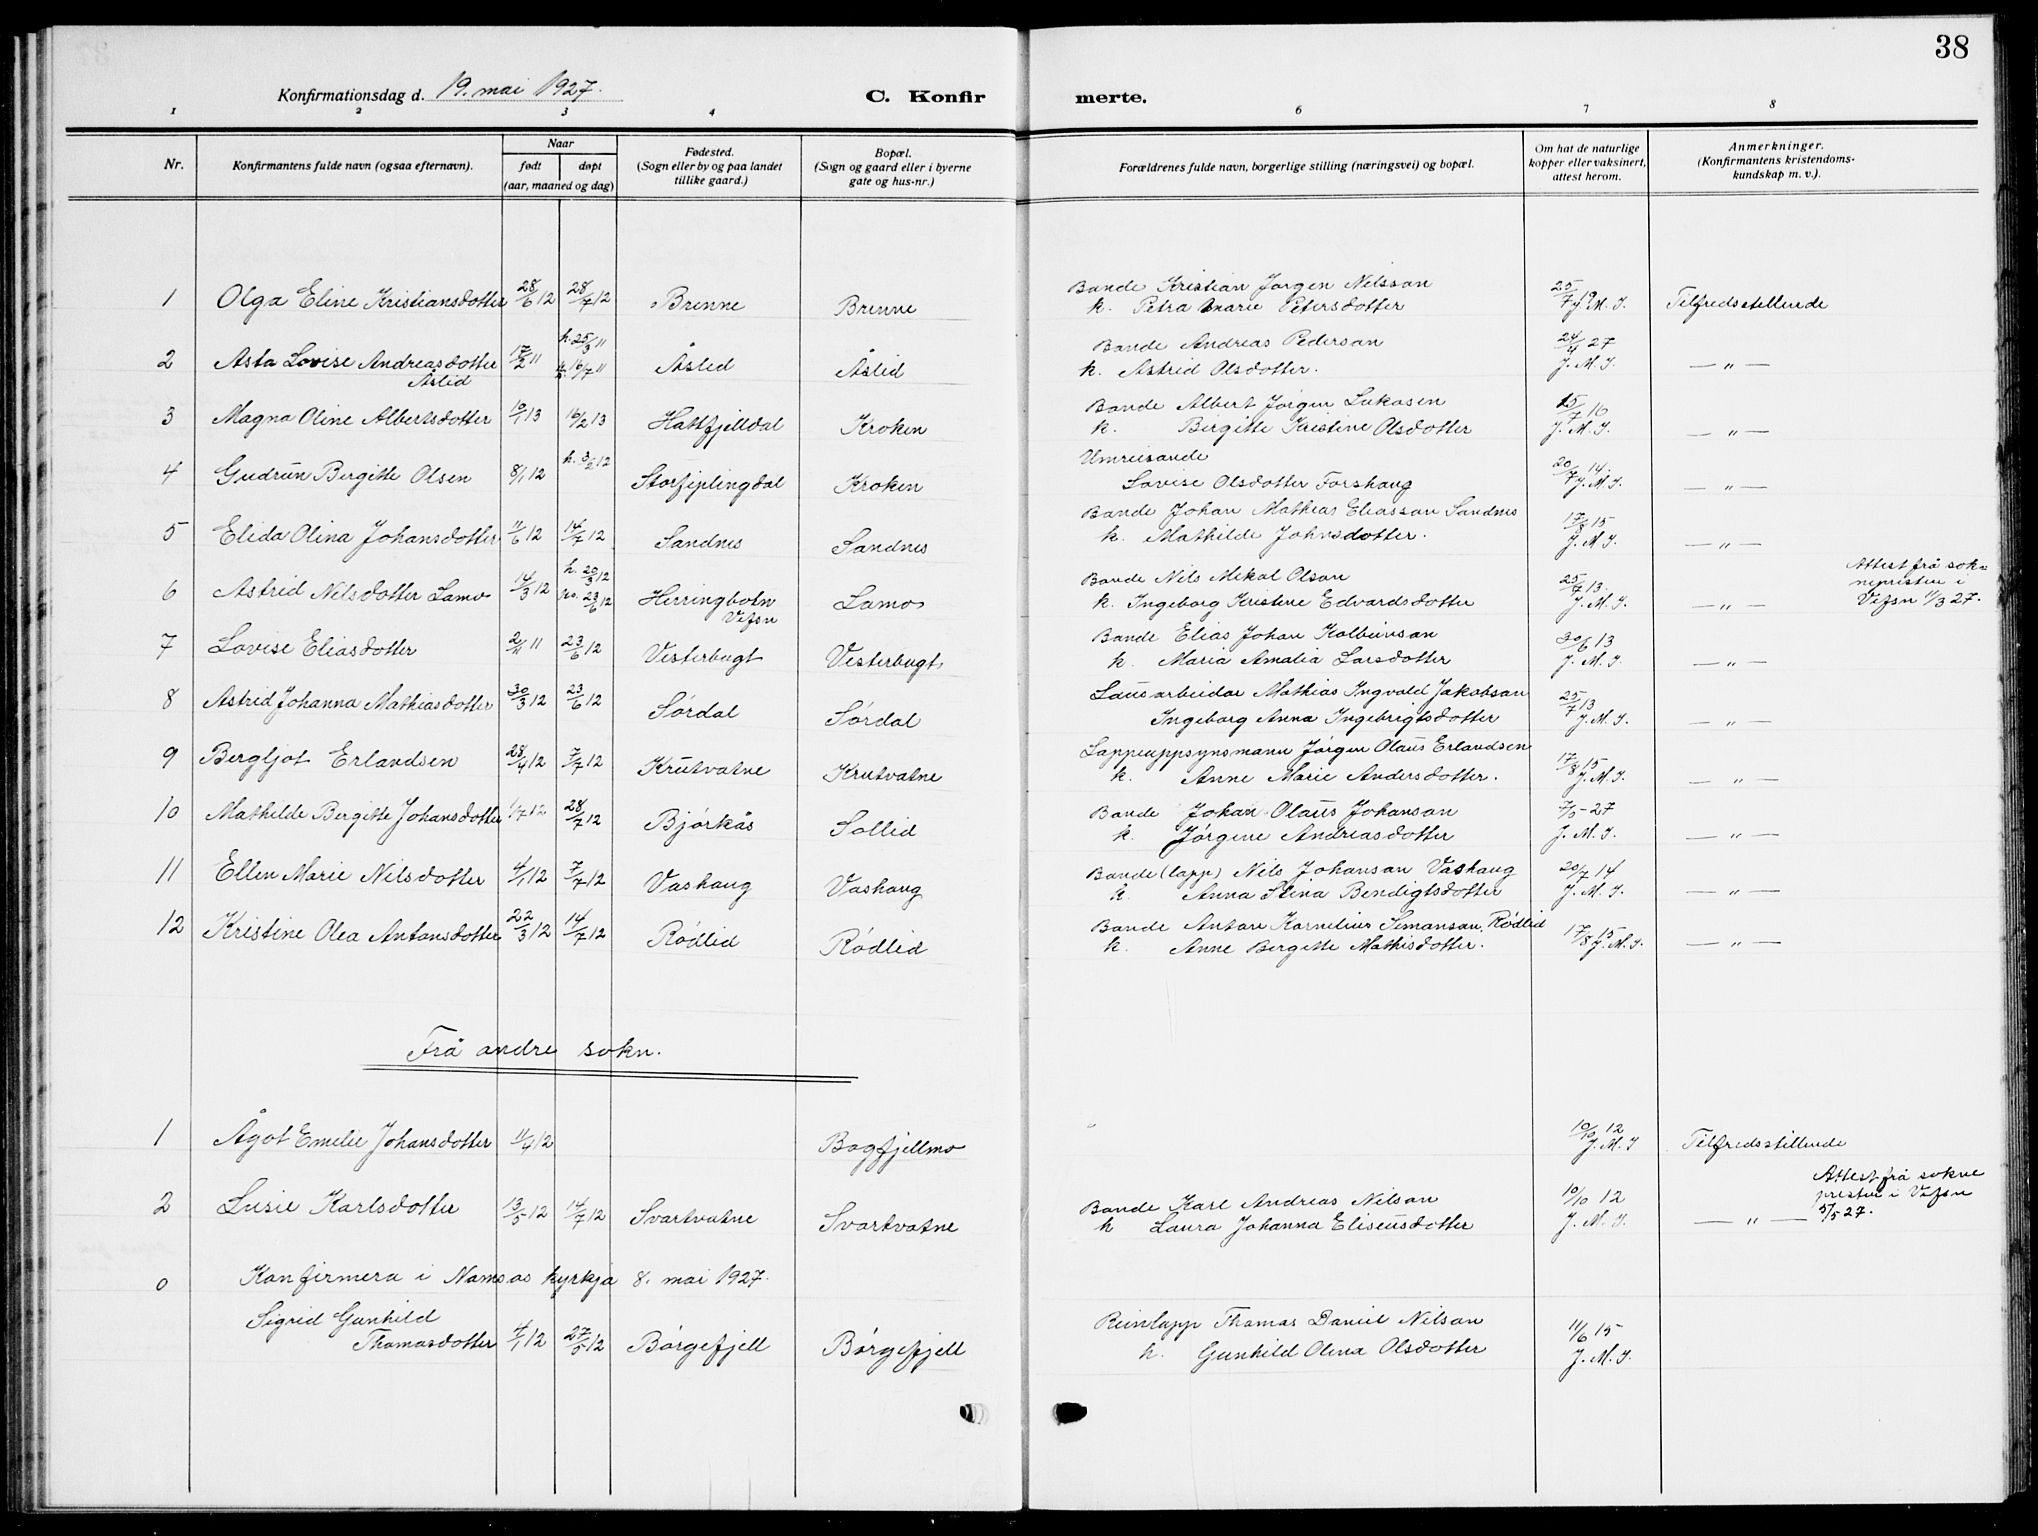 38
Konfirmationsdag d. 19. mai 1927.
C. Konfir
merte.
1 2 3 4 6 7 8
Nr.
Konfirmantens fulde navn (ogsaa efternavn).
Naar
født
døpt
(aar, maaned og dag)
Fødested.
(Sogn eller by og paa landet
tillike gaard.)
Bopæl.
(Sogn og gaard eller i byerne
gate og hus-nr.)
Forældrenes fulde navn, borgerlige stilling (næringsvei) og bopæl.
Om hat de naturlige
kopper eller vaksinert,
attest herom.
Anmerkninger.
(Konfirmantens kristendoms-
kundskap m. v.).
1 Olga Eline Kristiansdotter 28/6 12 28/7 12 Brenne Brenne
Bonde Kristian Jørgen Nilsson
k. Petra Marie Petersdotter
25/7 J. M. I. Tilfredsstillende
2 Asta Lovise Andreasdotter 17/2 11 h. 25/3 11
Åslid 16/7 11 Åslid Åslid
Bonde Andreas Pederson
k. Astrid Olsdotter.
24/4 27
J. M. I. — " —
3 Magna Oline Albertsdotter 10/1 13 16/2 13 Hattfjelldal Kroken
Bonde Albert Jørgen Lukasen
k. Birgitte Kristine Olsdotter
15/7 16
J. M. I. — " —
4 Gudrun Bergitte Olsen 8/1 12 h. 3/2 12 Storfiplingdal Kroken
Umreisande
Lovise Olsdotter Forshaug
20/7 14.
J. M. I. — " —
5 Elida Olina Johansdotter 11/6 12 14/7 12 Sandnes Sandnes
Bonde Johan Mathias Eliasson Sandnes
k. Mathilde Johnsdotter.
17/8 15
J. M. I. — " —
6 Astrid Nilsdotter Lamo 14/3 12 h. 20/3 12
23/6 12 Herringbotn
Vefsn Lamo
Bonde Nils Mikal Olson
k. Ingeborg Kristine Edvardsdotter
25/7 13.
J. M. I. — " —
Attest frå sok-
nepresten i
Vefsn 11/3 27.
7 Lovise Eliasdotter 2/11 11 23/6 12 Vesterbugt Vesterbugt
Bonde Elias Johan Kolbeinson
k. Maria Amalia Larsdotter
30/6 13
J. M. I. — " —
8 Astrid Johanna Mathiasdotter 30/3 12 23/6 12 Sørdal Sørdal
Lausarbeidar Mathias Ingvald Jakobson
Ingeborg Anna Ingebrigtsdotter
25/7 13
J. M. I. — " —
9 Bergljot Erlandsen 28/4 12 7/7 12 Krutvatne Krutvatne
Lappeuppsynsmann Jørgen Olaus Erlandsen
k. Anne Marie Andersdotter.
17/8 15
J. M. I. — " —
10 Mathilde Bergitte Johansdotter 1/7 12 28/7 12 Bjørkås Sollid
Bonde Johan Olaus Johanson
k. Jørgine Andreasdotter
7/5 - 27
J. M. I. — " —
11 Ellen Marie Nilsdotter 4/1 12 7/7 12 Vashaug Vashaug
Bonde (lapp) Nils Johanson Vashaug
k. Anna Stina Bendigtsdotter
20/7 14
J. M. I. — " —
12 Kristine Olea Antonsdotter 22/3 12 14/7 12 Rødlid Rødlid
Bonde Anton Kornelius Simonson, Rødlid
k. Anne Bergitte Mathisdotter.
17/8 15
J. M. I. — " —
Frå andre sokn.
1 Ågot Emelie Johansdotter 11/4 12 Bogfjellmo
10/10 12
J. M. I Tilfredsstillende
2 Lusie Karlsdotter 13/5 12 14/7 12 Svartvatne Svartvatne
Bonde Karl Andreas Nilson
k Laura Johanna Eliseusdotter
10/10 12
J. M. I. — " —
Attest frå sokne
presten i Vefsn
5/5 27.
0 Konfirmera i Namsos kyrkja 8. mai 1927.
Sigrid Gunhild
Thomasdotter 4/1 12 27/5 12 Børgefjell Børgefjell
Reinlapp Thomas Daniel Nilson
k. Gunhild Olena Olsdotter
11/6 15
J. M. I.